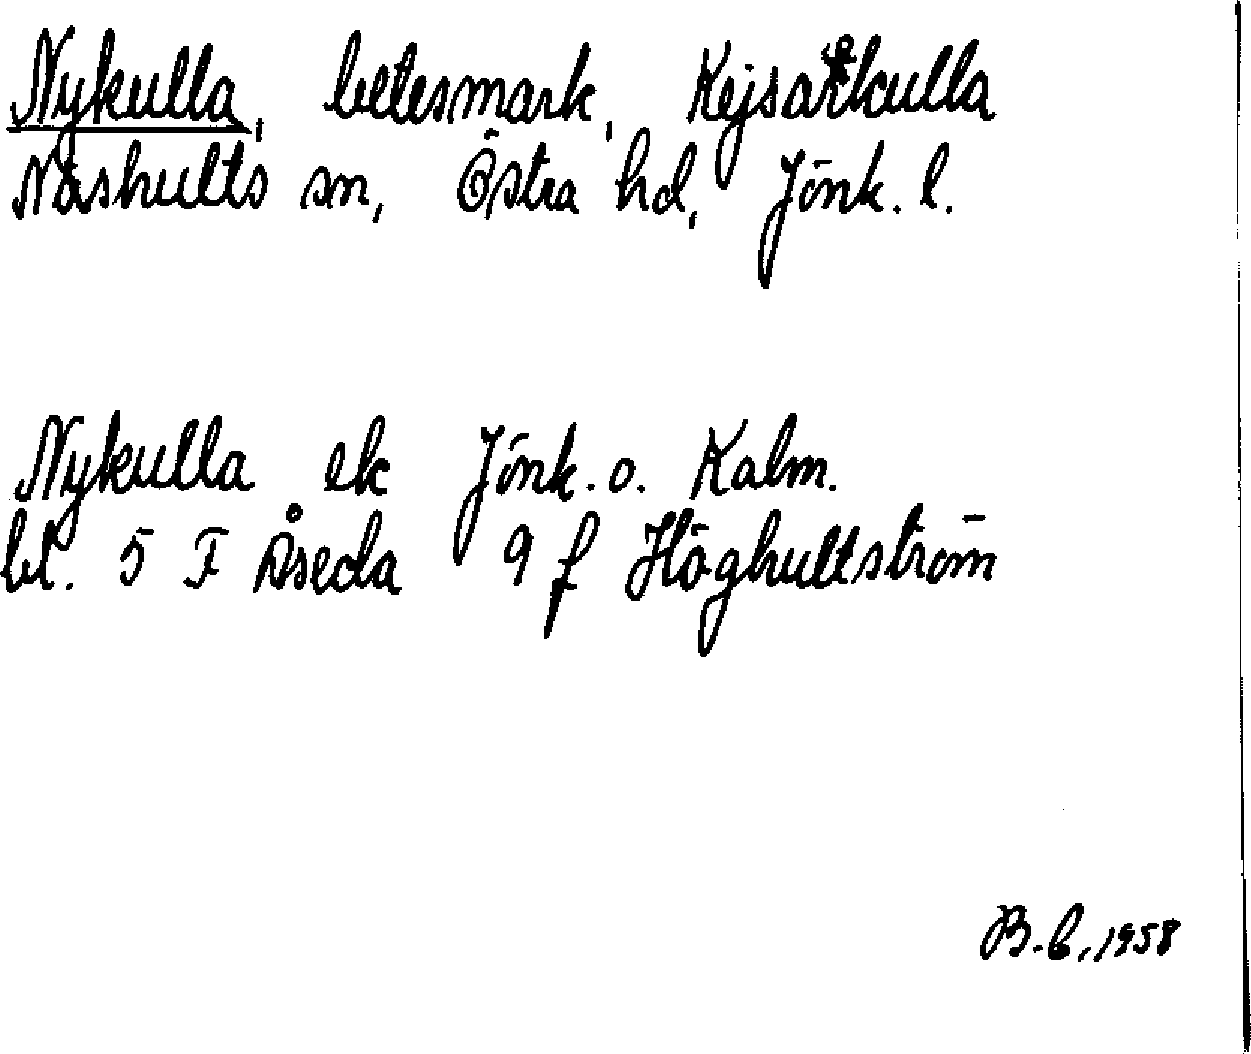 Nykulla, betesmark, Kejsarkulla
Näshults sn, Östra hd, Jönk. l.
Nykulla ek Jönk. o. Kalm.
bl. 5 F Åseda 9 f Höghultström
B. C, 1958